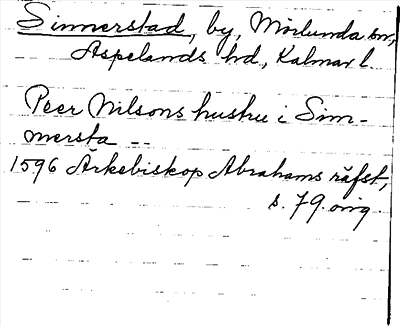 Sinnerstad, by, Mörlunda sn,
Aspelands hd, Kalmar l.
Peer Nilsons hustru i Sim-
mersta --
1596 Ärkebiskop Abrahams räfst,
s. 79. orig